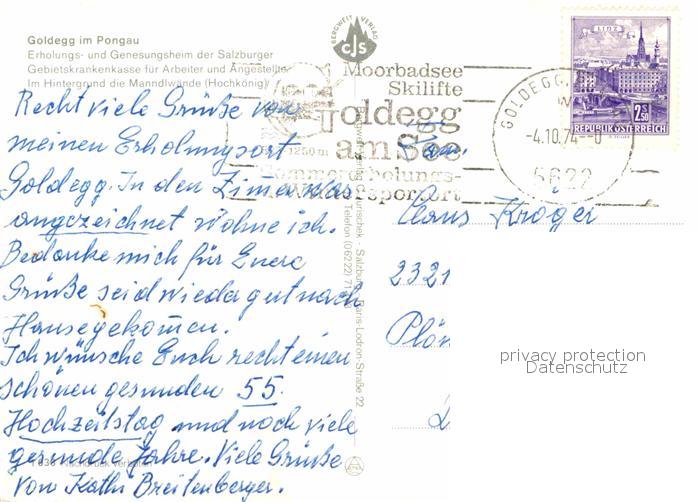 Goldegg im Pongau
Erholungs- und Genesungsheim der Salzburger
Gebietskrankenkasse für Arbeiter und Angestellte
Im Hintergrund die Mandlwände (Hochkönig)
Recht viele Grüße von
meinen Erholungsort
Goldegg. In den Zimer was
angezeichnet wohne ich.
Bedanke mich für Euere
Grüße seid wieder gut nach
Hause gekomen.
Ich wünsche Euch recht einen
schönen gesunden 55.
Hochzeitstag und noch viele
gesunde Jahre. Viele Grüße
von Kathi Breitenberger.
BERGWELT VERLAG
cJs
Moorbadsee
Skilifte
Goldegg
am See
1250 m
Sommererholungs-
Wintersportort
GOLDEGG
-4.10.74--0
5622
LINZ
2S50
REPUBLIK ÖSTERREICH
Fam.
Claus Kröger
2321
Plön
privacy protection
Datenschutz
Salzburg, Paris-Lodron-Straße 22
Telefon (06222) 71